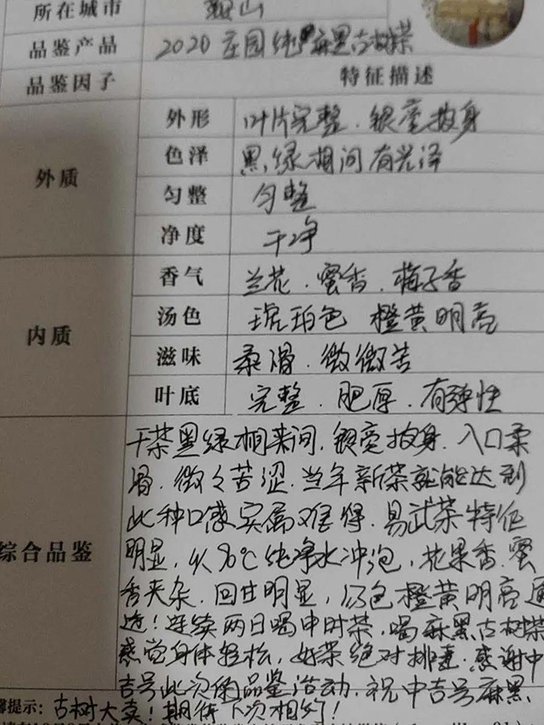 所在城市 鞍山
品鉴产品 2020庄园纯 麻黑古树茶
品鉴因子 特征描述
外质
外形 叶片完整.银毫披身
色泽 黑绿相间有光泽
匀整 匀整
净度 干净
内质
香气 兰花.蜜香.梅子香
汤色 琥珀色 橙黄明亮
滋味 柔滑.微微苦
叶底 完整.肥厚.有弹性
综合品鉴
干茶黑绿相夹间,银毫披身.入口柔
滑.微々苦涩.当年新茶就能达到
此种口感实属难得.易武茶特征
明显,以90℃纯净水冲泡,花果香.蜜
香夹杂.回甘明显,汤色橙黄明亮通
透!连续两日喝申时茶,喝麻黑古树茶
感觉身体轻松,好茶绝对排毒.感谢中
吉号此次的品鉴活动.祝中吉号麻黑
提示:古树大卖!期待下次相约!